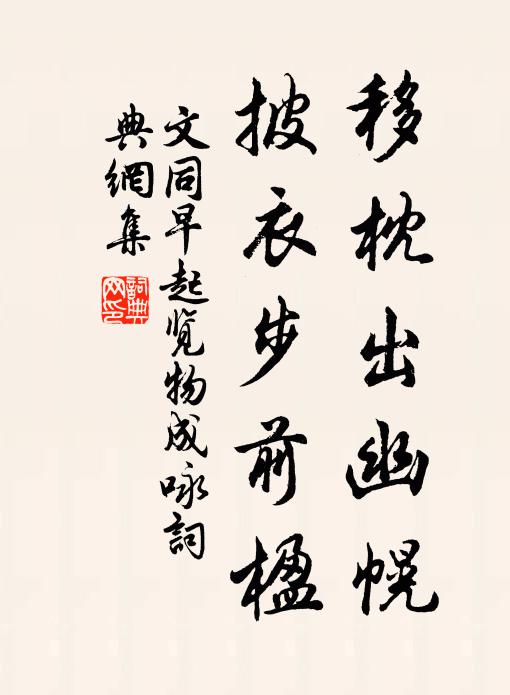 移枕出幽幌
披衣步前楹
文同早起览物成咏詞
典網集
詞典
网印